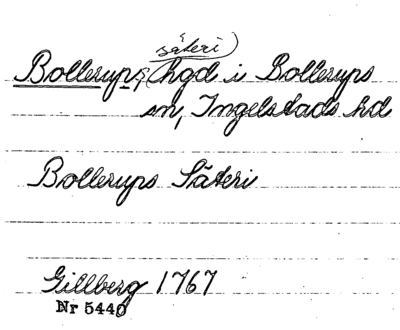 säteri)
Bollerups, (hgd i Bollerups
sn, Ingelstads hd
Bollerups Säteri
Gillberg 1767
Nr 5440